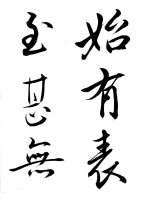 始有表
至甚無